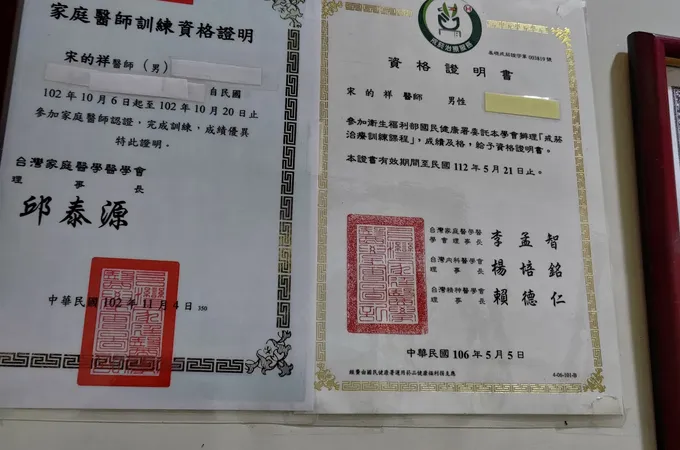 家庭醫師訓練資格證明
宋的祥醫師（男）
自民國
102年10月6日起至102年10月20日止
參加家庭醫師認證，完成訓練，成績優異
特此證明。
台灣家庭醫學醫學會
理事長
邱泰源
中華民國102年11月4日 350
戒菸治療醫師
基礎戒菸證字第003419號
資格證明書
宋的祥醫師 男性
參加衛生福利部國民健康署委託本學會辦理「戒菸
治療訓練課程」，成績及格，給予資格證明書。
本證書有效期間至民國112年5月21日止。
台灣家庭醫學
醫學會理事長 李孟智
台灣內科醫學會
理事長 楊培銘
台灣精神醫學會
理事長 賴德仁
中華民國106年5月5日
經費由國民健康署運用菸品健康福利捐支應
4-06-101-B